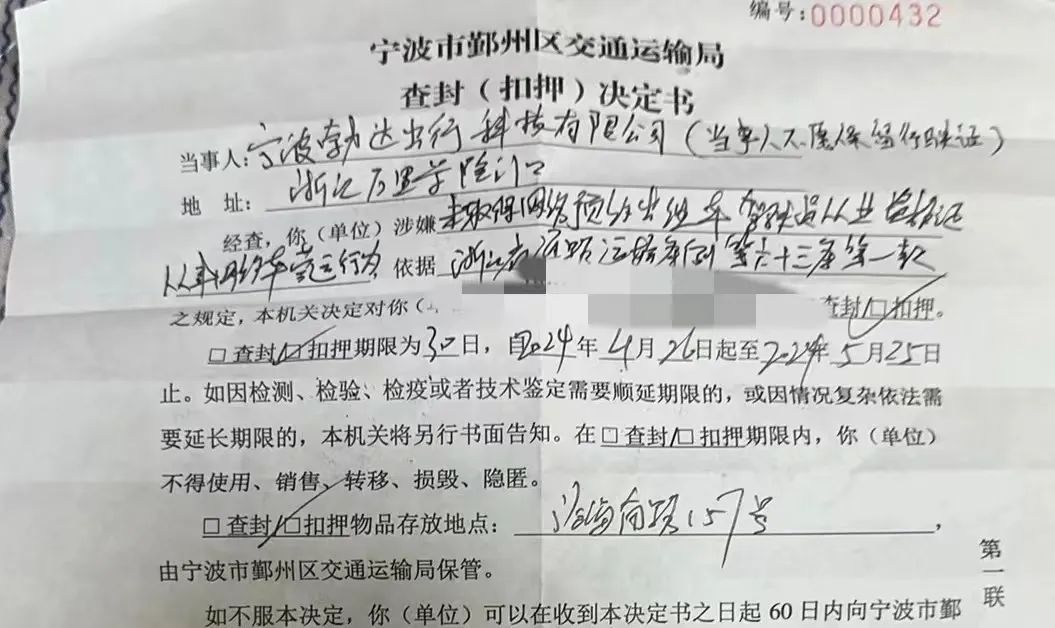 编号:0000432
宁波市鄞州区交通运输局
查封（扣押）决定书
当事人:宁波勃达出行科技有限公司（当事人不愿保留行驶证）
地 址: 浙江万里学院门口
经查，你（单位）涉嫌未取得网络预约出租车驾驶员从业资格证
从事网约车营运行为 依据 浙江省道路运输条例第六十三条第一款
之规定，本机关决定对你（ 查封/□扣押。
□查封/□扣押期限为30日，自2024年4月26日起至2024年5月25日
止。如因检测、检验、检疫或者技术鉴定需要顺延期限的，或因情况复杂依法需
要延长期限的，本机关将另行书面告知。在□查封/□扣押期限内，你（单位）
不得使用、销售、转移、损毁、隐匿。
□查封/□扣押物品存放地点: 沧海南路157号，
由宁波市鄞州区交通运输局保管。
如不服本决定，你（单位）可以在收到本决定书之日起60日内向宁波市鄞
第一联